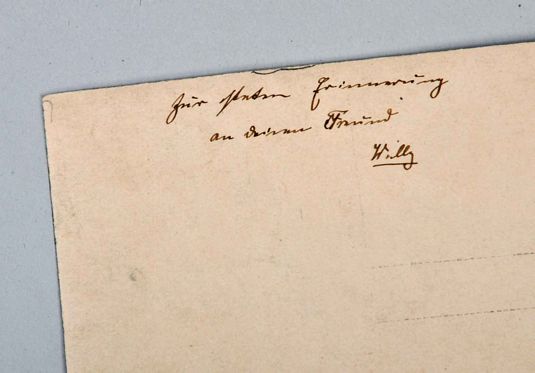 Zur steten Erinnerung
an deinen Freund
Willy